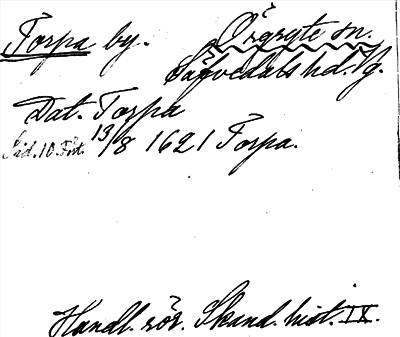 Torpa by. Örgryte sn.
Sävedals hd. Vg.
Dat. Torpa
Sid. 10. Fot. 13/8 1621 Torpa.
Handl. rör. Skand. hist. IX.